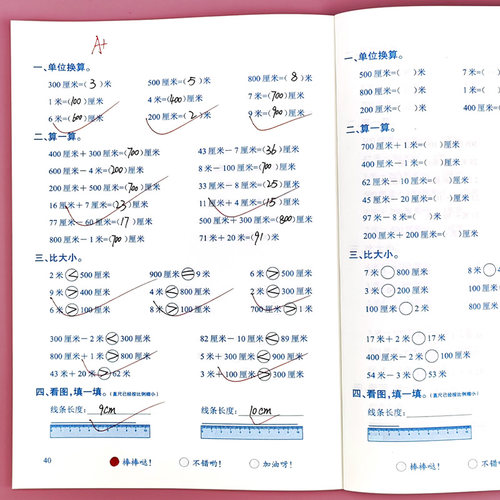 A+
一、单位换算。
300厘米=(3)米 500厘米=(5)米 800厘米=(8)米
1米=(100)厘米 4米=(400)厘米 7米=(700)厘米
6米=(600)厘米 200厘米=(2)米 9米=(900)厘米
二、算一算。
400厘米+300厘米=(700)厘米 43厘米-7厘米=(36)厘米
600厘米-4米=(200)厘米 8米-100厘米=(700)厘米
200厘米+500厘米=(700)厘米 33厘米-8厘米=(25)厘米
16厘米+7厘米=(23)厘米 11厘米+4厘米=(15)厘米
77厘米-60厘米=(17)厘米 500厘米+300厘米=(800)厘米
800厘米-1米=(700)厘米 71米+20米=(91)米
三、比大小。
2米<500厘米 900厘米=9米 6米>500厘米
9米>400厘米 4米<800厘米 2米<300厘米
6米>100厘米 8米>100厘米 700厘米>1米
300厘米-2米<300厘米 82厘米-10厘米<89厘米
800厘米+1米>800厘米 5米+300厘米<900厘米
43米+20米>62米 3米+100厘米>300厘米
四、看图,填一填。(直尺已经按比例缩小)
线条长度:9cm 线条长度:10cm
40 棒棒哒! 不错哟! 加油呀!
一、单位换算。
500厘米=( )米 7米=(
800厘米=( )米 1米=(
200厘米=( )米 400厘米
二、算一算。
700厘米+1米=( )厘米
400厘米-1米=( )厘米
62厘米-10厘米=( )厘米
45厘米-20厘米=( )厘米
97米-8米=( )米
200厘米+200厘米=( )厘米
三、比大小。
7米 800厘米 8米
3米 200厘米 900厘米
100厘米 2米 800厘米
17米+2米 17米
400厘米-2米 100厘米
54米-3米 53米
四、看图,填一填。(直尺已经按比例缩小)
线条长度:
棒棒哒!